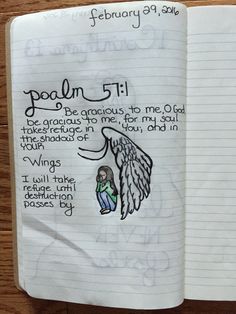 february 29, 2016
psalm 57:1
Be gracious to me, O God
be gracious to me, for my soul
takes refuge in You, and in
the shadow of
YOUR
Wings
I will take
refuge until
destruction
passes by.